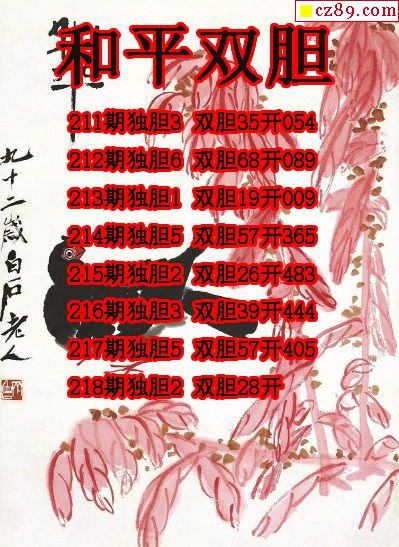 cz89.com
和平
和平双胆
211期独胆3 双胆35开054
212期独胆6 双胆68开089
213期独胆1 双胆19开009
214期独胆5 双胆57开365
215期独胆2 双胆26开483
216期独胆3 双胆39开444
217期独胆5 双胆57开405
218期独胆2 双胆28开
九十二岁白石老人